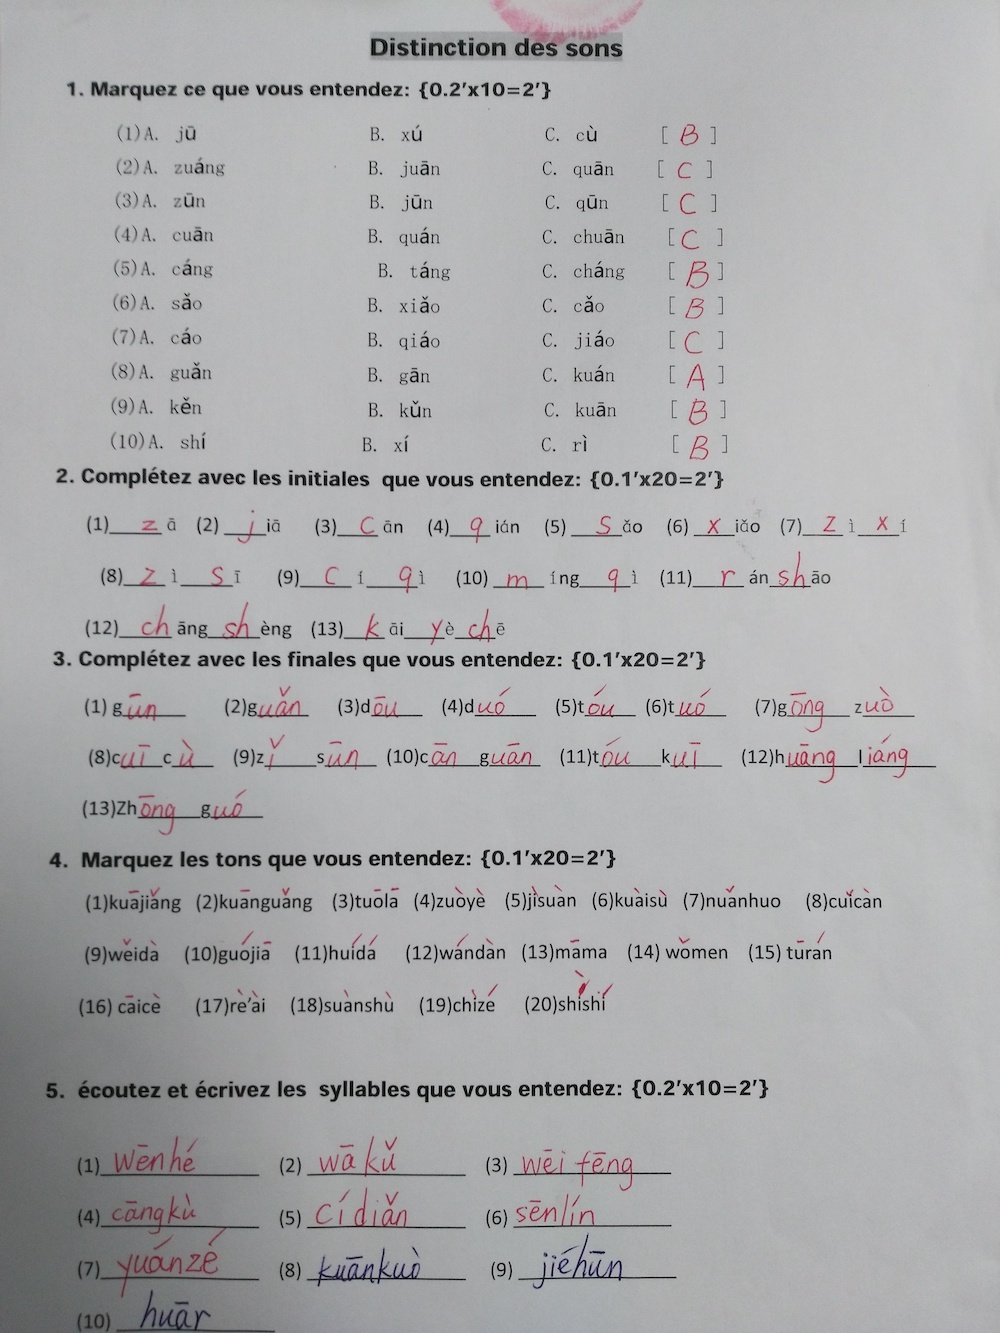 Distinction des sons
1. Marquez ce que vous entendez: {0.2'x10=2'}
(1)A. jū B. xú C. cù [ B ]
(2)A. zuáng B. juān C. quān [ C ]
(3)A. zūn B. jūn C. qūn [ C ]
(4)A. cuān B. quán C. chuān [ C ]
(5)A. cáng B. táng C. cháng [ B ]
(6)A. sǎo B. xiǎo C. cǎo [ B ]
(7)A. cáo B. qiáo C. jiáo [ C ]
(8)A. guǎn B. gān C. kuán [ A ]
(9)A. kěn B. kǔn C. kuān [ B ]
(10)A. shí B. xí C. rì [ B ]
2. Complétez avec les initiales que vous entendez: {0.1'x20=2'}
(1) z ā (2) j iā (3) c ān (4) q ián (5) s ǎo (6) x iǎo (7) z ì x í
(8) z ì s ī (9) c í q ì (10) m íng q ì (11) r án sh āo
(12) ch āng sh èng (13) k āi y è ch ē
3. Complétez avec les finales que vous entendez: {0.1'x20=2'}
(1) gūn (2)guǎn (3)dōu (4)duó (5)tóu (6)tuó (7)gōng zuò
(8)cuī cù (9)zǐ sūn (10)cān guān (11)tóu kuī (12)huāng liáng
(13)Zhōng guó
4. Marquez les tons que vous entendez: {0.1'x20=2'}
(1)kuājiǎng (2)kuānguǎng (3)tuōlā (4)zuòyè (5)jìsuàn (6)kuàisù (7)nuǎnhuo (8)cuǐcàn
(9)wěidà (10)guójiā (11)huídá (12)wándàn (13)māma (14) wǒmen (15) tūrán
(16) cāicè (17)rè'ài (18)suànshù (19)chìzé (20)shìshí
5. écoutez et écrivez les syllables que vous entendez: {0.2'x10=2'}
(1) wēnhé (2) wā kǔ (3) wēi fēng
(4) cāngkù (5) cídiǎn (6) sēnlín
(7) yuánzé (8) kuānkuò (9) jiéhūn
(10) huār